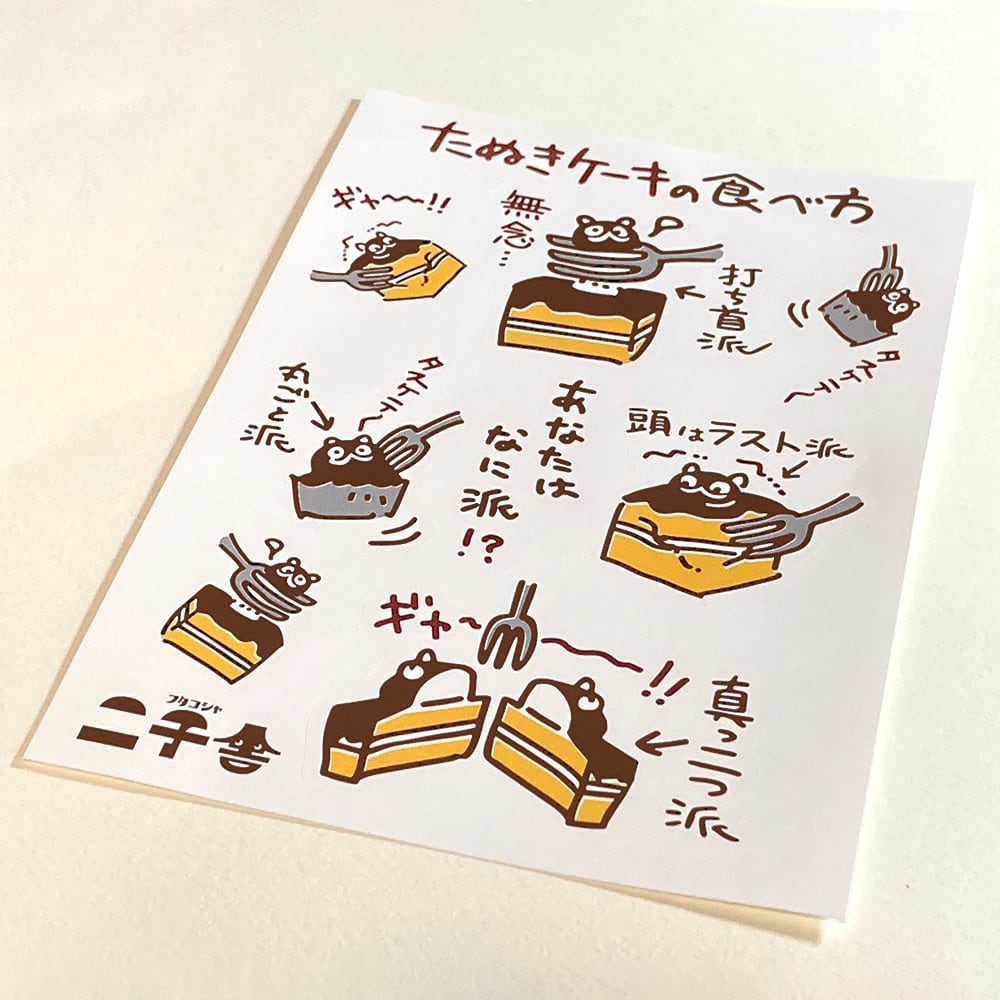 たぬきケーキの食べ方
ギャ〜〜!!
無念…
打ち首派
タスケテ〜
丸ごと派
タスケテ〜
あなたは
なに派!?
頭はラスト派
ギャ〜〜!!
真っ二つ派
フタコシャ
ニ子舎